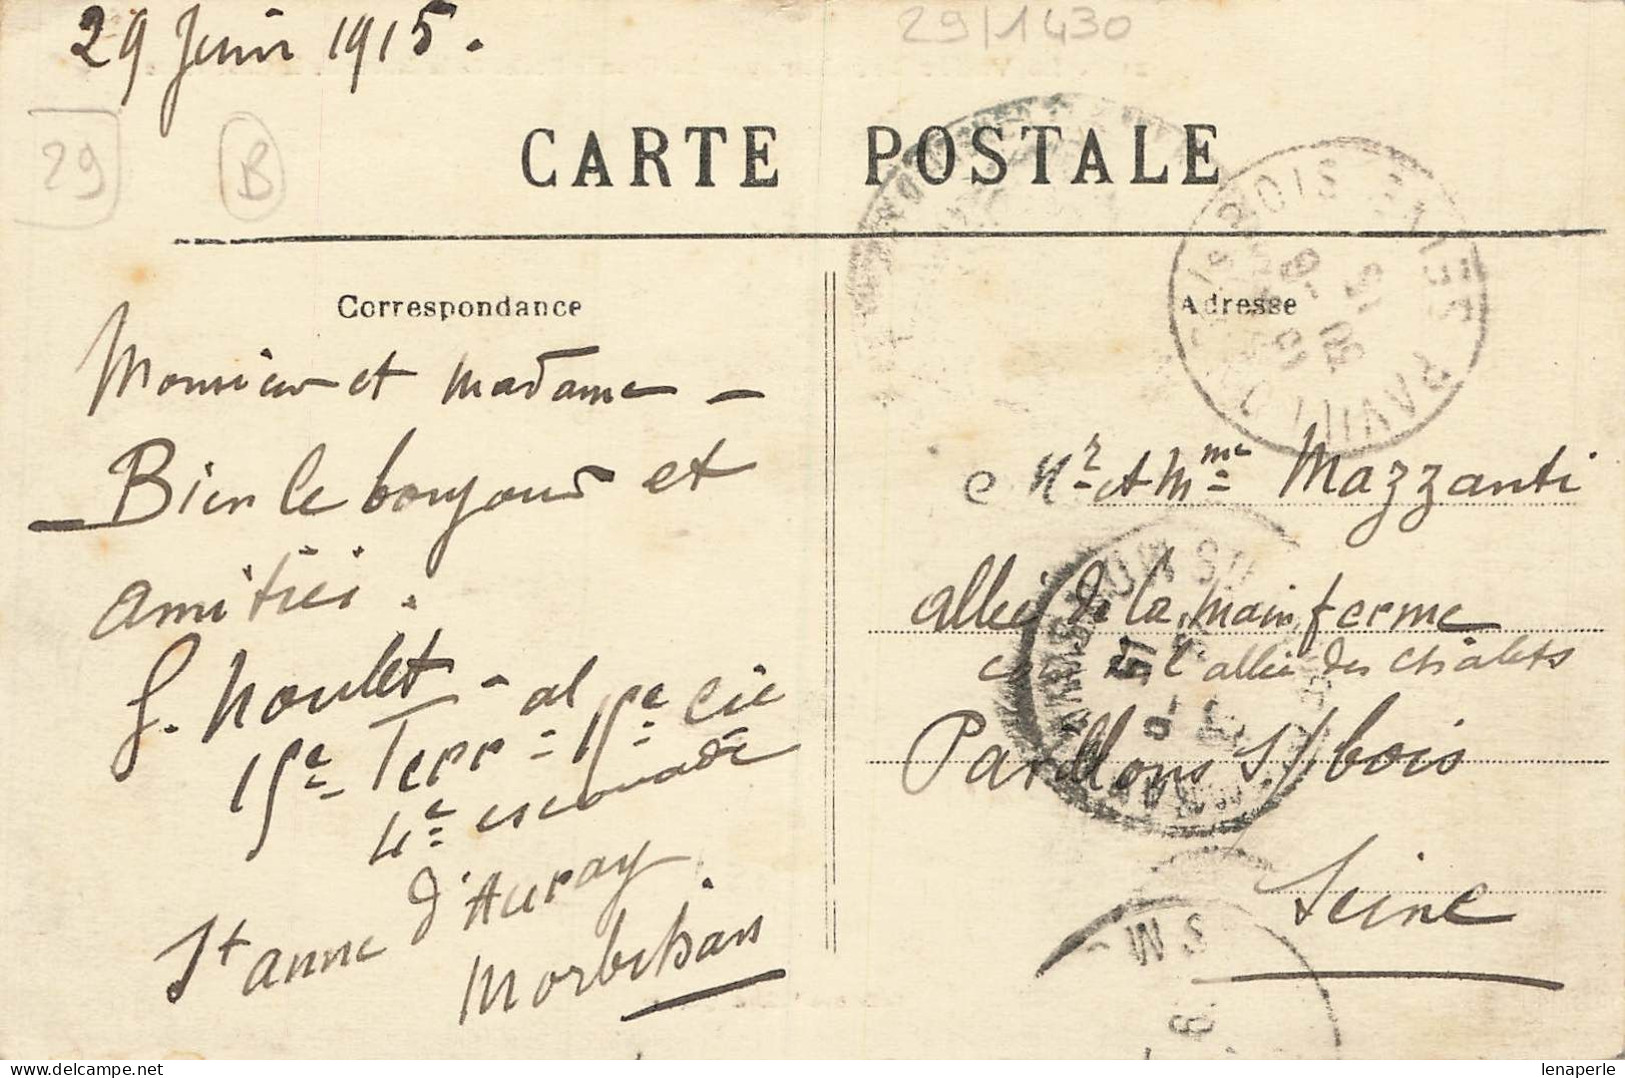 29 Juin 1915.
29/1430
29
B
CARTE POSTALE
Correspondance
Adresse
Monsieur et Madame -
Bien le bonjour et
amitiés.
Noulet - al
15e Terr = 15e Cie
4e escouade
St anne d'Auray
Morbihan
Mr et Mme Mazzanti
allée de la main ferme
l'allée des chalets
Pavillons S/ bois
Seine
PAVILL
lenaperle